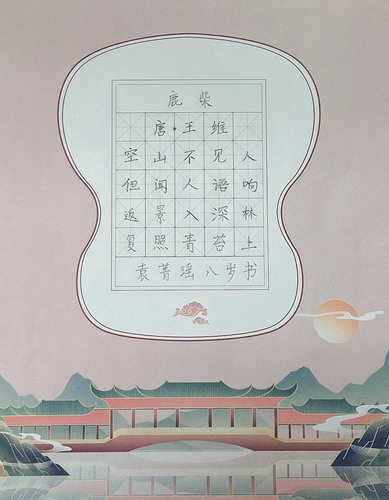 鹿柴
唐·王维
空山不见人
但闻人语响
返景入深林
复照青苔上
袁菁瑶八岁书